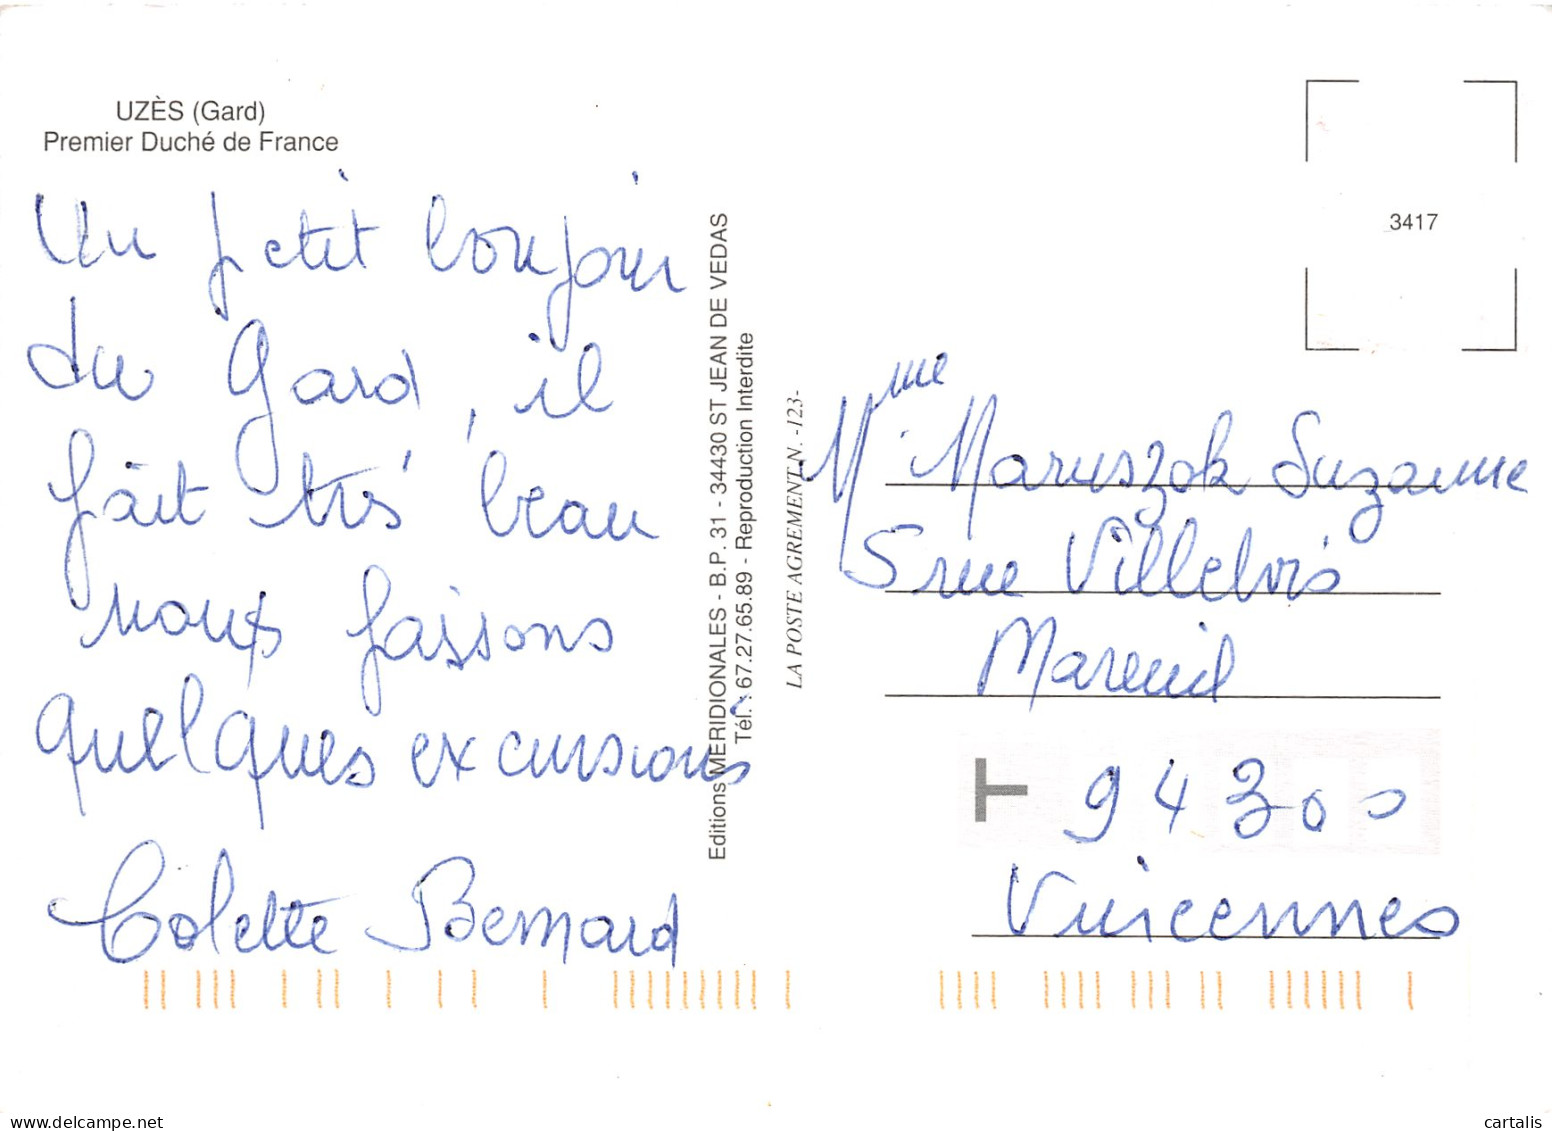 UZÈS (Gard)
Premier Duché de France
Un petit bonjour
du Gard, il
fait très beau
nous faisons
quelques excursions
Colette Bernard
Editions MERIDIONALES - B.P. 31 - 34430 ST JEAN DE VEDAS
Tél. : 67.27.65.89 - Reproduction Interdite
LA POSTE AGREMENT N. -123-
3417
Mme Maruszak Suzanne
5 rue Villebois
Mareuil
T 94300
Vincennes
delcampe.net
cartalis